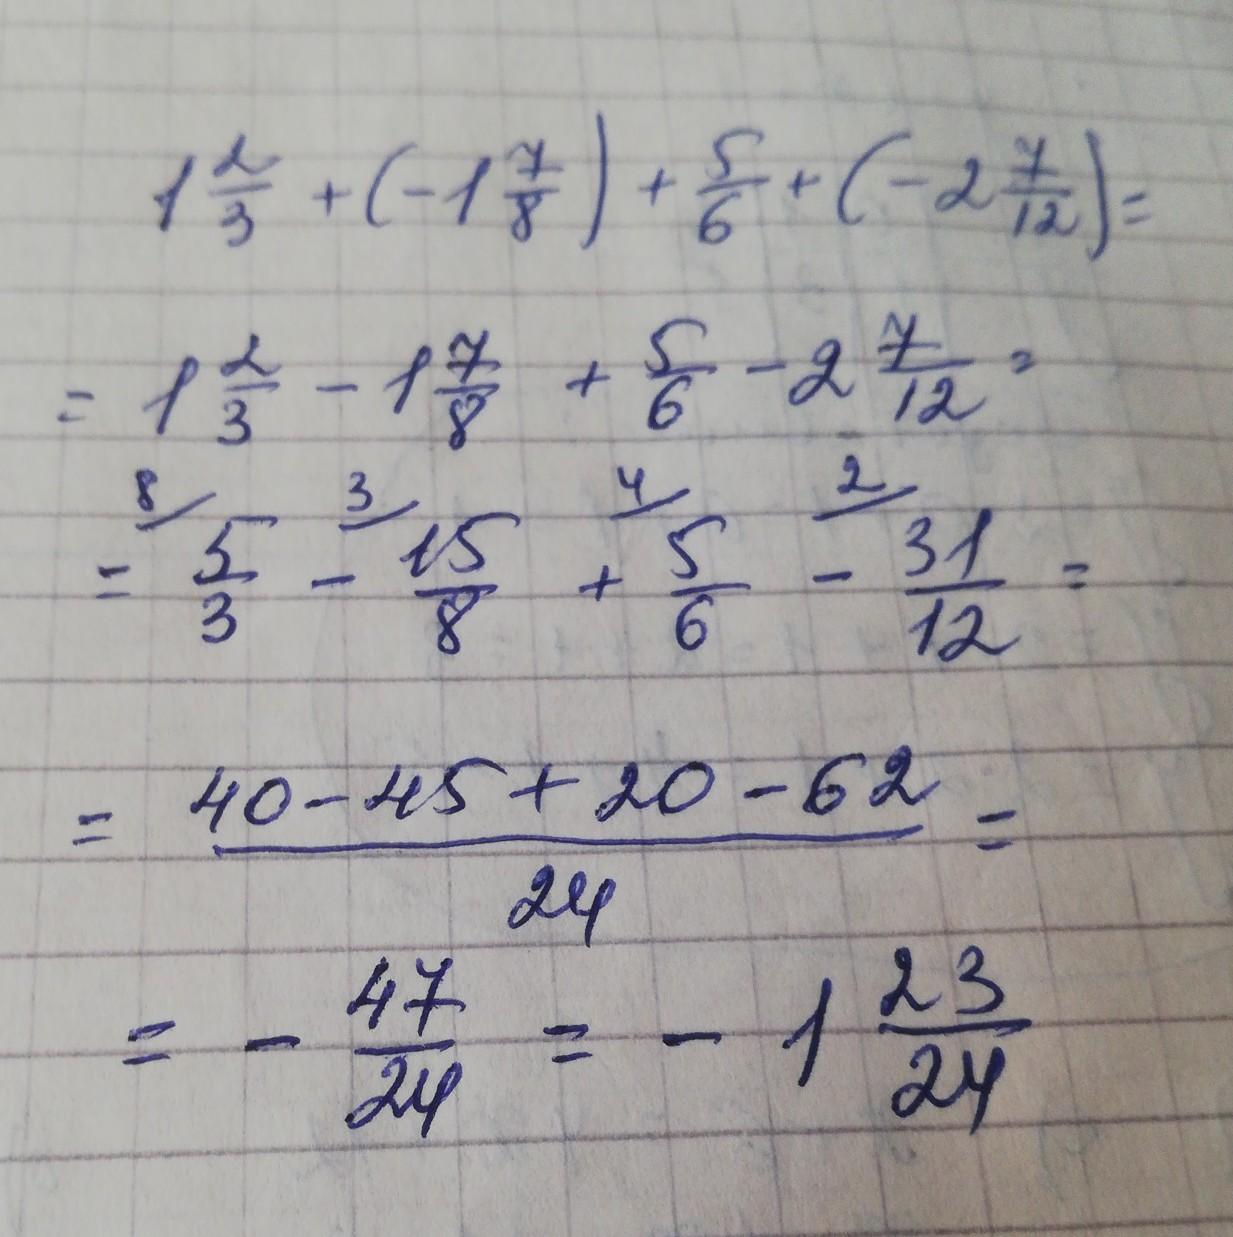 1 2/3 + (-1 7/8) + 5/6 + (-2 7/12) =
= 1 2/3 - 1 7/8 + 5/6 - 2 7/12 =
8/ 3/ 4/ 2/
= 5/3 - 15/8 + 5/6 - 31/12 =
= (40 - 45 + 20 - 62)/24 =
= - 47/24 = - 1 23/24